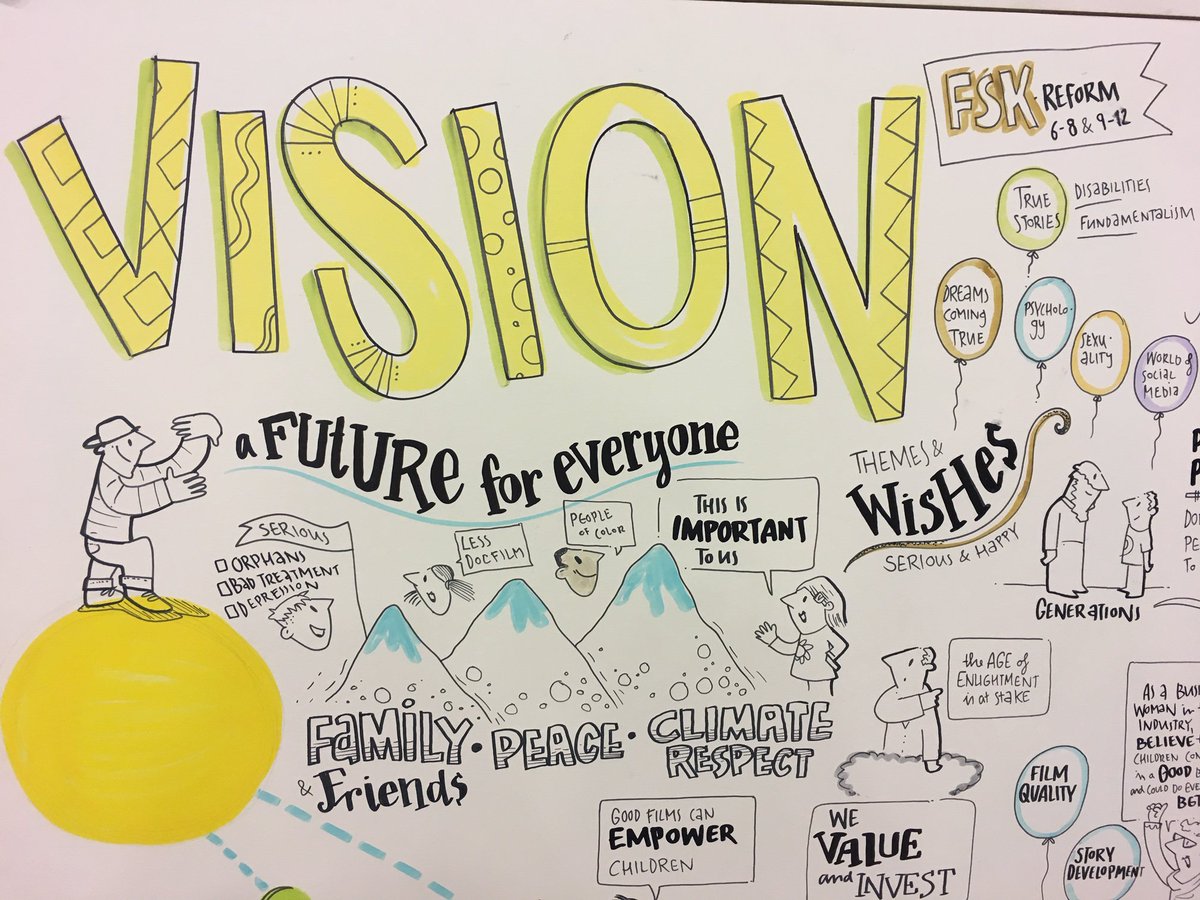 VISION
FSK-REFORM
6-8 & 9-12
TRUE
STORIES
DISABILITIES
FUNDAMENTALISM
DREAMS
COMING
TRUE
PSYCHOLO-
gy
SEXU-
ALITY
WORLD of
SOCIAL
MEDIA
a FUTURE for everyone
THEMES &
WISHES
SERIOUS & HAPPY
SERIOUS
ORPHANS
BAD TREATMENT
DEPRESSION
LESS
DOCFILM
PEOPLE
of COLOR
THIS IS
IMPORTANT
TO US
GENERATIONS
FAMILY · PEACE · CLIMATE
RESPECT
& Friends
the AGE of
ENLIGHTMENT
is at STAKE
AS A BUSI
WOMAN in
INDUSTRY,
BELIEVE
CHILDREN CON
in a GOOD
and COULD DO EVE
BET
FILM
QUALITY
STORY
DEVELOPMENT
GOOD FILMS CAN
EMPOWER
CHILDREN
WE
VALUE
and INVEST